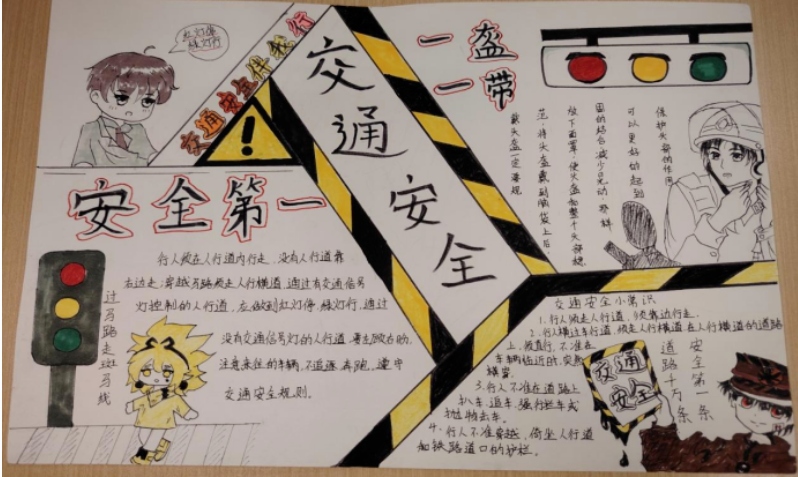 红灯停
绿灯行
交通安全伴我行
交通安全
一盔
一带
保护头部的作用
可以更好的起到
戴头盔一定要规
安全第一
行人般在人行道内行走,没有人行道靠
右边走;穿越马路般走人行横道,通过有交通信号
灯控制的人行道,应做到红灯停,绿灯行,通过
没有交通信号灯的人行道,要左顾右盼,
注意来往的车辆,不追逐、奔跑,遵守
交通安全规则。
过马路走斑马线
交通安全小常识
1.行人须走人行道,须靠边行走.
2.行人横过车行道,须走人行横道,在人行横道的道路
上,须直行,不准在
车辆临近时,突然
横穿.
3.行人不准在道路上
扒车、追车、强行拦车或
抛物击车.
4.行人不准穿越、倚坐人行道
和铁路道口的护栏。
交通
安全
道路千万条
安全第一条